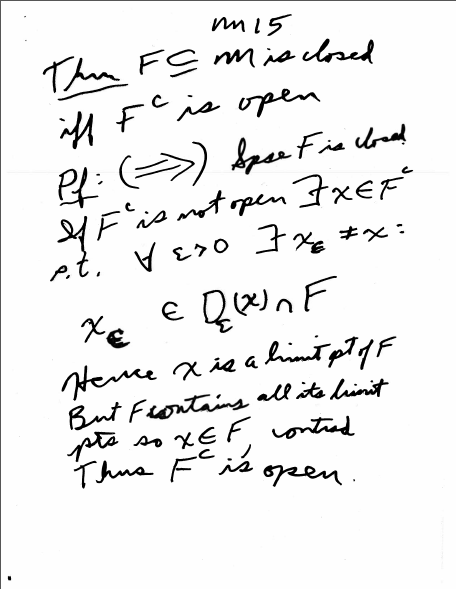 mm 15
Thm F ⊆ M is closed
iff F^c is open
Pf: (⟹) Spse F is closed
If F^c is not open ∃ x ∈ F^c
s.t. ∀ ε>0 ∃ x_ε ≠ x :
x_ε ∈ D_ε(x) ∩ F
Hence x is a limit pt of F
But F contains all its limit
pts so x ∈ F, contrad
Thus F^c is open.